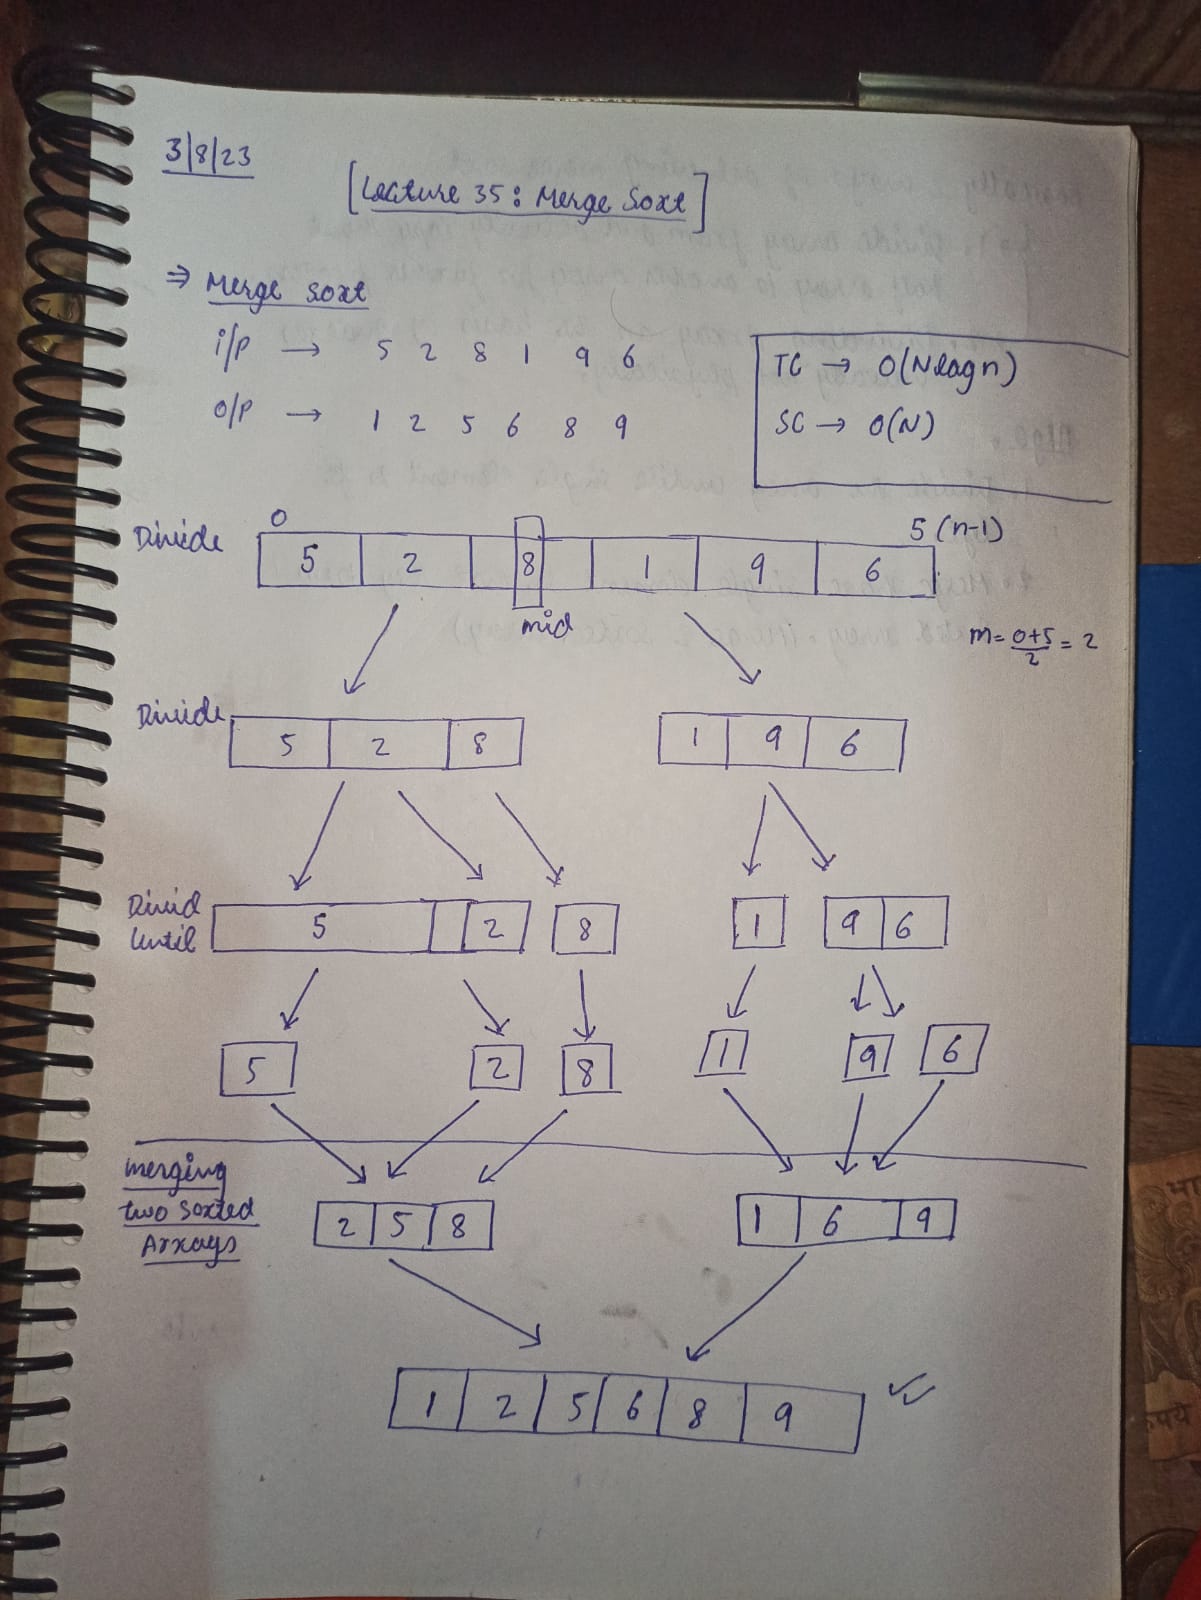 3/8/23
[Lecture 35: Merge Sort]
⇒ Merge sort
i/p → 5 2 8 1 9 6
o/p → 1 2 5 6 8 9
TC → O(Nlogn)
SC → O(N)
0 5 (n-1)
Divide 5 2 8 1 9 6
mid
m = 0+5/2 = 2
Divide 5 2 8 1 9 6
Divid 5 2 8 1 9 6
Until
5 2 8 1 9 6
merging
two sorted
Arrays
2 5 8 1 6 9
1 2 5 6 8 9